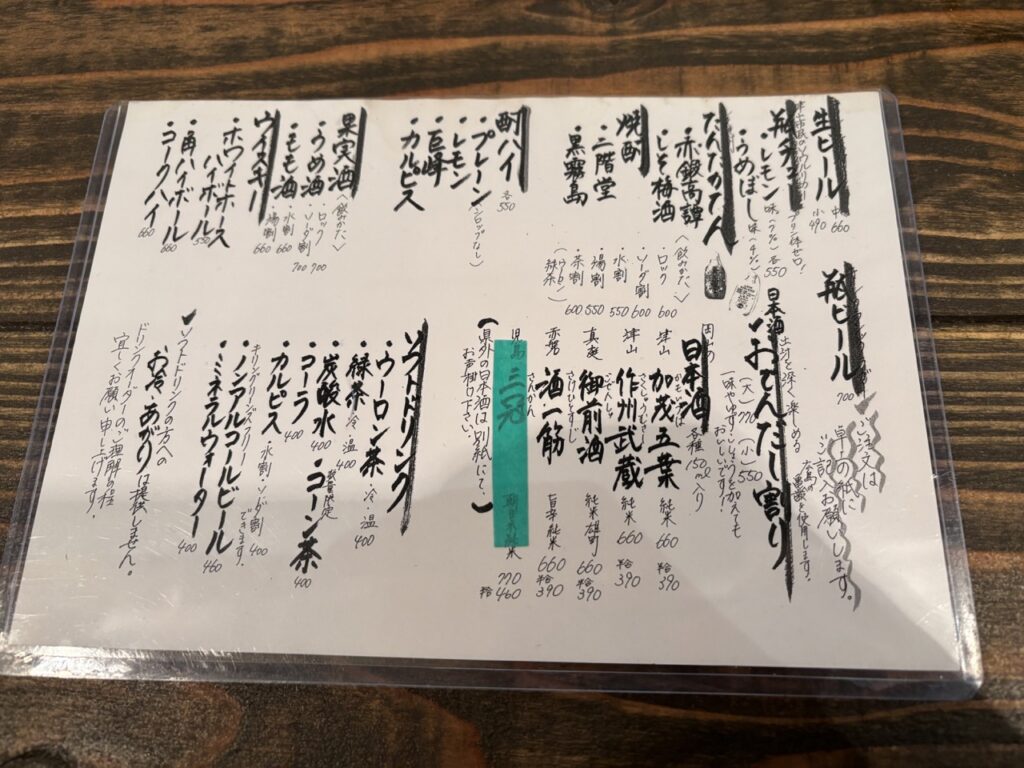 生ビール
中 660
小 490
瓶チュー
プリン体ゼロ!
・レモン味(7%)
・うめぼし味(4%)
各550
だんだかたん
赤銀高譚
・しそ梅酒
焼酎
・二階堂
・黒霧島
〈飲みかた〉
・ロック 600
・ソーダ割 600
・水割 550
・湯割 550
・茶割 600
酎ハイ
各550
・プレーン
(シロップなし)
・レモン
・巨峰
・カルピス
果実酒
・うめ酒
・もも酒
〈飲みかた〉
・ロック 700
・ソーダ割 700
水割 660
湯割 660
ウイスキー
・ホワイトホースハイボール 550
・角ハイボール 660
・コークハイ 660
瓶ビール
700
ご注文は
卓上の紙に
ご記入お願いします。
日本酒 おでんだし割り
(大)770 (小)550
一味やゆずこしょうを加えても
おいしいです!
日本酒
各種150ml入り
津山 加茂五葉 純米 660 半合390
津山 作州武蔵 純米 660 半合390
真庭 御前酒 純米雄町 660 半合390
赤磐 酒一筋 旨辛純米 660 半合390
児島 三冠 770 半合460
(県外の日本酒は別紙にて。
お声掛け下さい。)
ソフトドリンク
・ウーロン茶 ・冷・温 400
・緑茶 冷・温 400
・炭酸水 400
・コーン茶 400
・コーラ 400
・カルピス
・水割・ソーダ割 できます。 400
・ノンアルコールビール 400
・ミネラルウォーター 460
ソフトドリンクの方への
お冷、あがりは提供しません。
ドリンクオーダーのご理解の程
宜しくお願い申し上げます。